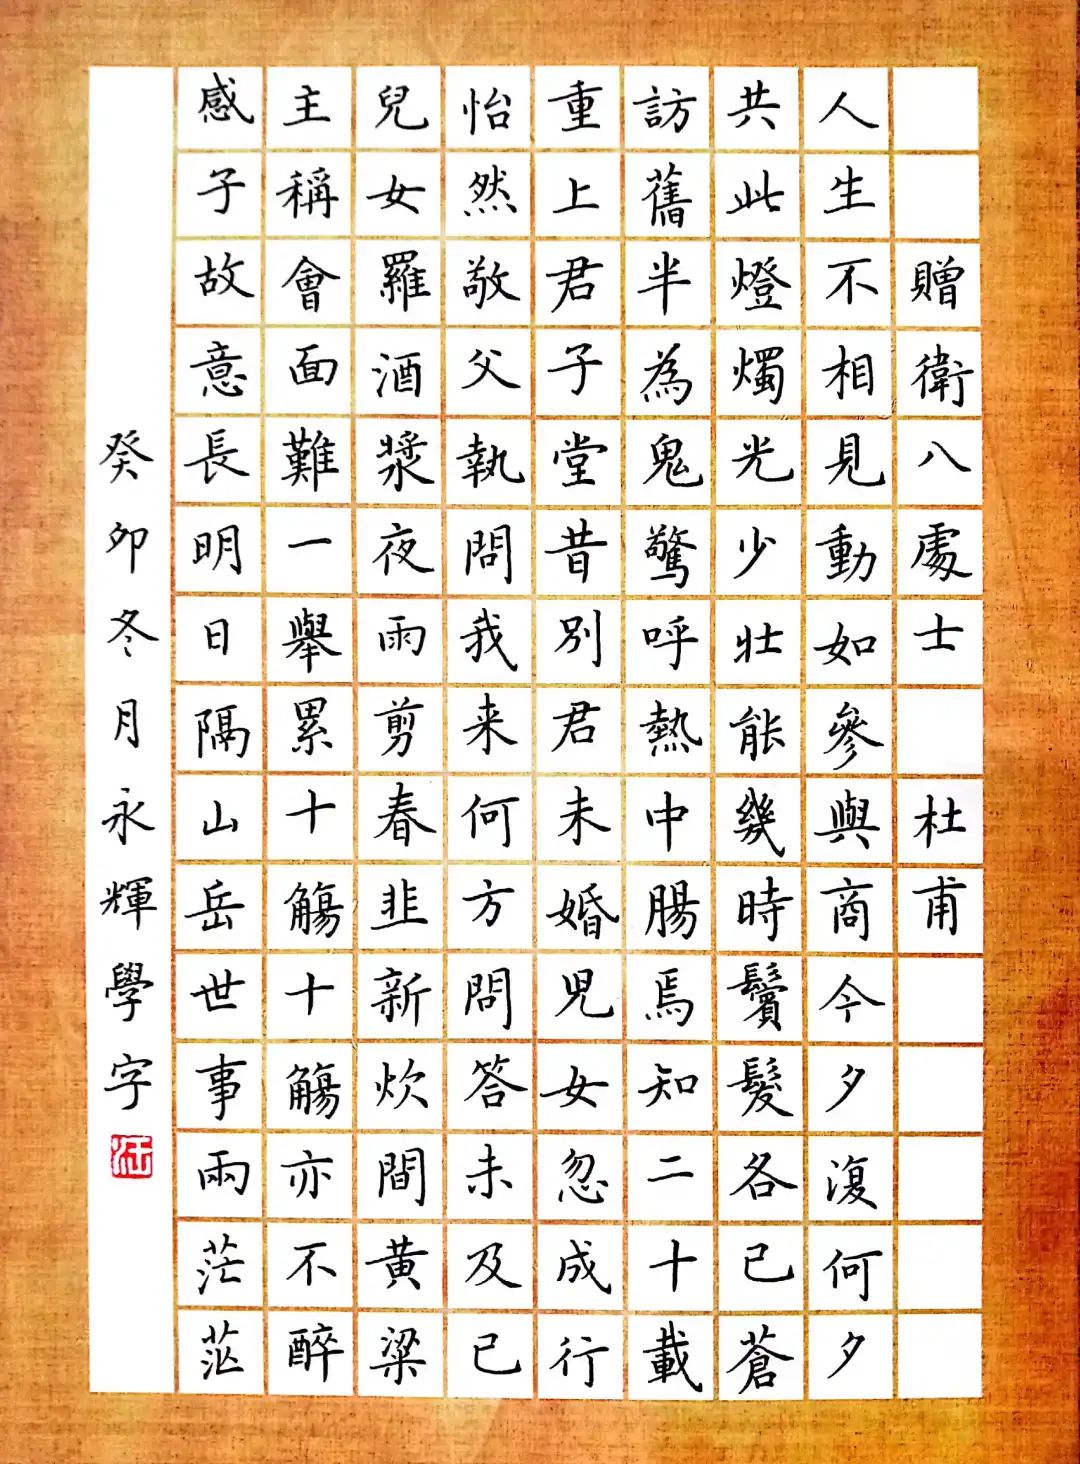 贈衛八處士 杜甫
人生不相見動如參與商今夕復何夕
共此燈燭光少壯能幾時鬢髮各已蒼
訪舊半為鬼驚呼熱中腸焉知二十載
重上君子堂昔別君未婚児女忽成行
怡然敬父執問我来何方問答未及已
兒女羅酒漿夜雨剪春韭新炊間黄粱
主稱會面難一舉累十觴十觴亦不醉
感子故意長明日隔山岳世事兩茫茫
癸卯冬月永輝學字